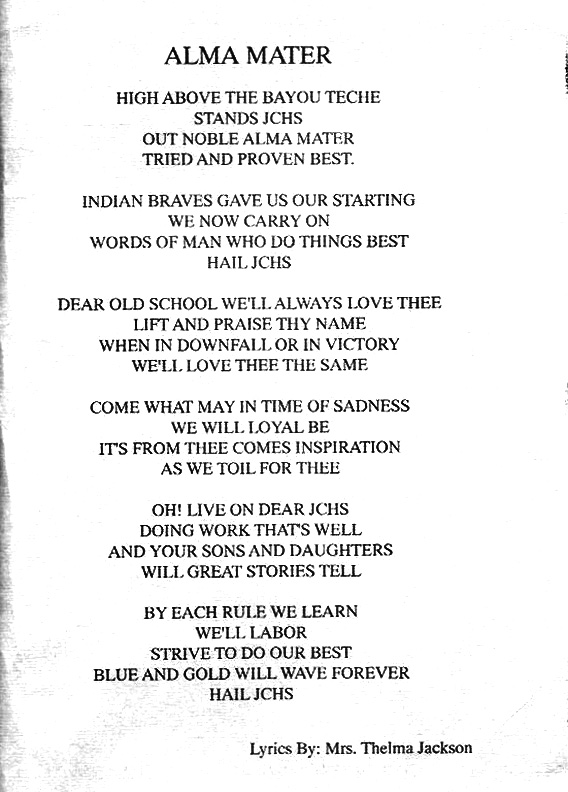 ALMA MATER
HIGH ABOVE THE BAYOU TECHE
STANDS JCHS
OUT NOBLE ALMA MATER
TRIED AND PROVEN BEST.
INDIAN BRAVES GAVE US OUR STARTING
WE NOW CARRY ON
WORDS OF MAN WHO DO THINGS BEST
HAIL JCHS
DEAR OLD SCHOOL WE'LL ALWAYS LOVE THEE
LIFT AND PRAISE THY NAME
WHEN IN DOWNFALL OR IN VICTORY
WE'LL LOVE THEE THE SAME
COME WHAT MAY IN TIME OF SADNESS
WE WILL LOYAL BE
IT'S FROM THEE COMES INSPIRATION
AS WE TOIL FOR THEE
OH! LIVE ON DEAR JCHS
DOING WORK THAT'S WELL
AND YOUR SONS AND DAUGHTERS
WILL GREAT STORIES TELL
BY EACH RULE WE LEARN
WE'LL LABOR
STRIVE TO DO OUR BEST
BLUE AND GOLD WILL WAVE FOREVER
HAIL JCHS
Lyrics By: Mrs. Thelma Jackson